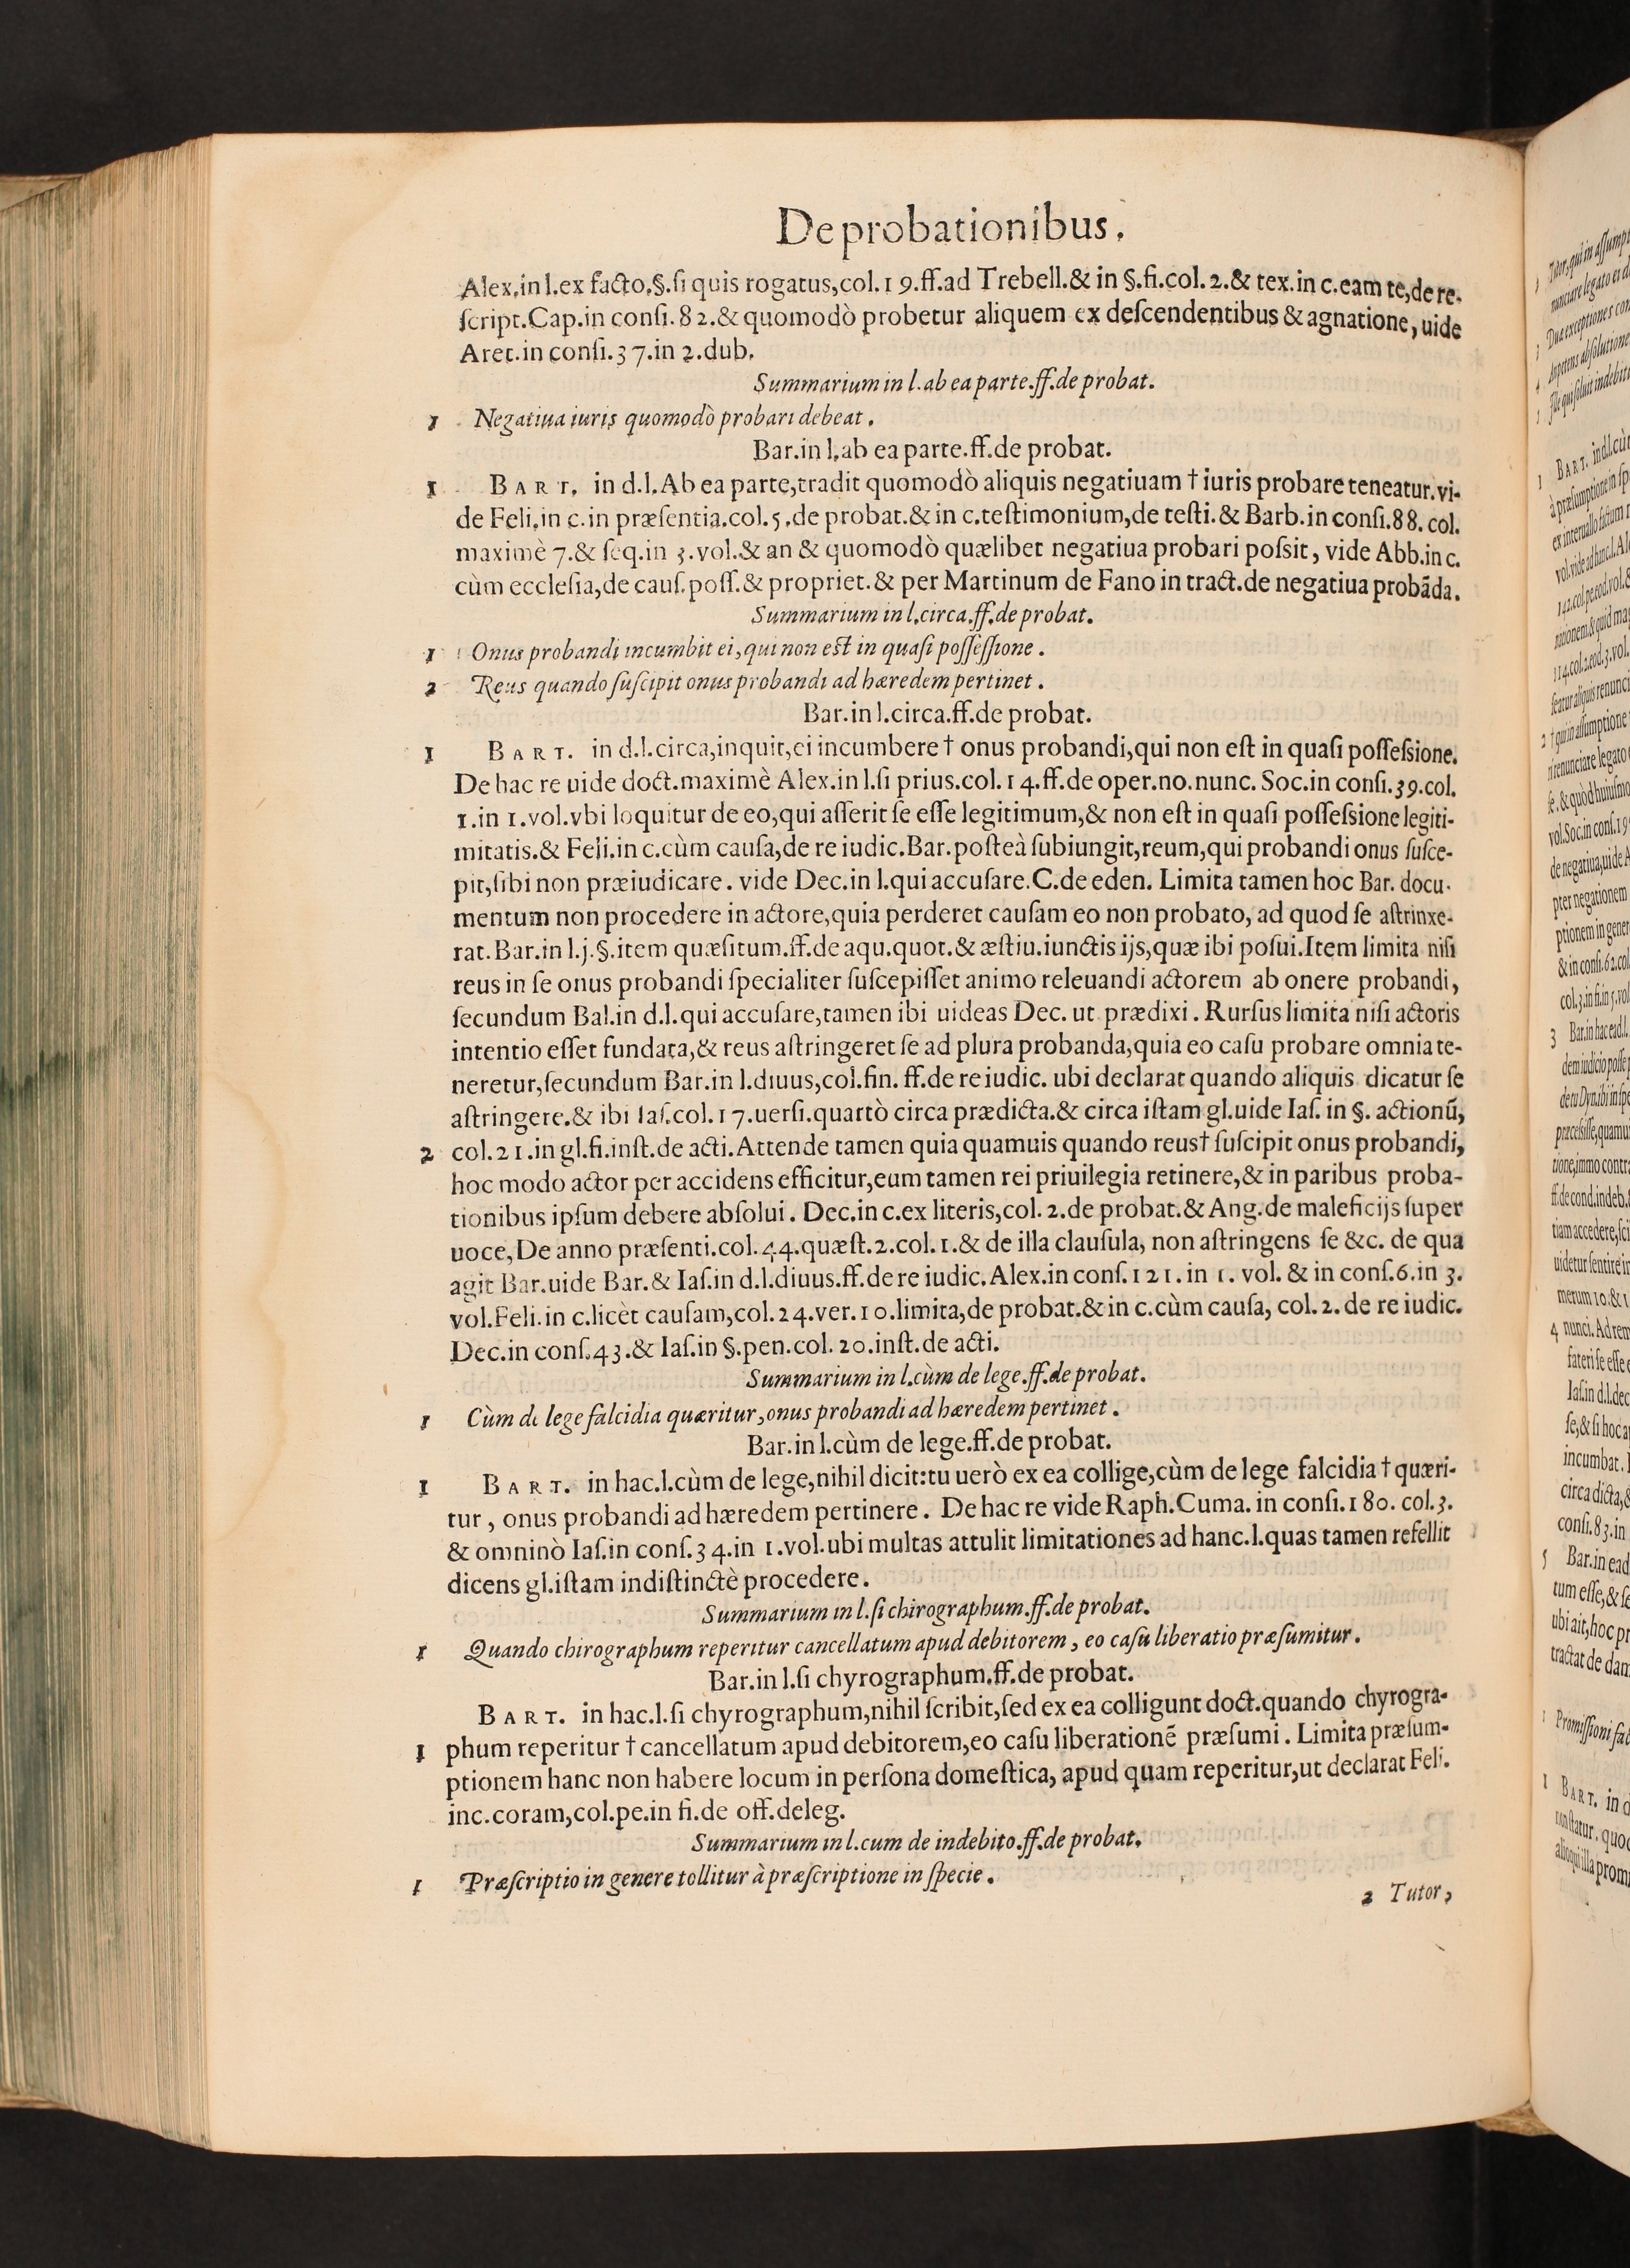 De probationibus.
Alex.in l.ex facto.§.ſi quis rogatus,col.19.ff.ad Trebell.& in §.fi.col.2.& tex.in c.eam te,de re-
ſcript.Cap.in conſi.82.& quomodò probetur aliquem ex deſcendentibus & agnatione, uide
Aret.in conſi.37.in 2.dub.
Summarium in l.ab ea parte.ff.de probat.
1 Negatiua iuris quomodò probari debeat.
Bar.in l.ab ea parte.ff.de probat.
1 BART. in d.l.Ab ea parte,tradit quomodò aliquis negatiuam † iuris probare teneatur.vi-
de Feli.in c.in præſentia.col.5.de probat.& in c.teſtimonium,de teſti.& Barb.in conſi.88.col.
maximè 7.& ſeq.in 3.vol.& an & quomodò quælibet negatiua probari poſsit, vide Abb.in c.
cùm eccleſia,de cauſ.poſſ.& propriet.& per Martinum de Fano in tract.de negatiua probãda.
Summarium in l.circa.ff.de probat.
1 Onus probandi incumbit ei, qui non est in quaſi poſſeſſione.
2 Reus quando ſuſcipit onus probandi ad hæredem pertinet.
Bar.in l.circa.ff.de probat.
1 BART. in d.l.circa,inquit,ei incumbere † onus probandi,qui non eſt in quaſi poſſeſsione.
De hac re uide doct.maximè Alex.in l.ſi prius.col.14.ff.de oper.no.nunc. Soc.in conſi.39.col.
1.in 1.vol.vbi loquitur de eo,qui aſſerit ſe eſſe legitimum,& non eſt in quaſi poſſeſsione legiti-
mitatis.& Feli.in c.cùm cauſa,de re iudic.Bar.poſteà ſubiungit,reum,qui probandi onus ſuſce-
pit,ſibi non præiudicare. vide Dec.in l.qui accuſare.C.de eden. Limita tamen hoc Bar. docu-
mentum non procedere in actore,quia perderet cauſam eo non probato, ad quod ſe aſtrinxe-
rat.Bar.in l.j.§.item quæſitum.ff.de aqu.quot.& æſtiu.iunctis ijs,quæ ibi poſui.Item limita niſi
reus in ſe onus probandi ſpecialiter ſuſcepiſſet animo releuandi actorem ab onere probandi,
ſecundum Bal.in d.l.qui accuſare,tamen ibi uideas Dec. ut prædixi. Rurſus limita niſi actoris
intentio eſſet fundata,& reus aſtringeret ſe ad plura probanda,quia eo caſu probare omnia te-
neretur,ſecundum Bar.in l.diuus,col.fin. ff.de re iudic. ubi declarat quando aliquis dicatur ſe
aſtringere.& ibi Iaſ.col.17.uerſi.quartò circa prædicta.& circa iſtam gl.uide Iaſ. in §. actionũ,
2 col.21.in gl.fi.inſt.de acti.Attende tamen quia quamuis quando reus† ſuſcipit onus probandi,
hoc modo actor per accidens efficitur,eum tamen rei priuilegia retinere,& in paribus proba-
tionibus ipſum debere abſolui. Dec.in c.ex literis,col.2.de probat.& Ang.de maleficijs ſuper
uoce,De anno præſenti.col.44.quæſt.2.col.1.& de illa clauſula, non aſtringens ſe &c. de qua
agit Bar.uide Bar.& Iaſ.in d.l.diuus.ff.de re iudic.Alex.in conſ.121.in 1. vol. & in conſ.6.in 3.
vol.Feli.in c.licèt cauſam,col.24.ver.10.limita,de probat.& in c.cùm cauſa, col.2. de re iudic.
Dec.in conſ.43.& Iaſ.in §.pen.col.20.inſt.de acti.
Summarium in l.cùm de lege.ff.de probat.
1 Cùm de lege falcidia quæritur, onus probandi ad hæredem pertinet.
Bar.in l.cùm de lege.ff.de probat.
1 BART. in hac.l.cùm de lege,nihil dicit:tu uerò ex ea collige,cùm de lege falcidia † quæri-
tur, onus probandi ad hæredem pertinere. De hac re vide Raph.Cuma. in conſi.180. col.3.
& omninò Iaſ.in conſ.34.in 1.vol.ubi multas attulit limitationes ad hanc.l.quas tamen refellit
dicens gl.iſtam indiſtinctè procedere.
Summarium in l.ſi chirographum.ff.de probat.
1 Quando chirographum reperitur cancellatum apud debitorem, eo caſu liberatio præſumitur.
Bar.in l.ſi chyrographum.ff.de probat.
BART. in hac.l.ſi chyrographum,nihil ſcribit,ſed ex ea colligunt doct.quando chyrogra-
1 phum reperitur † cancellatum apud debitorem,eo caſu liberationẽ præſumi. Limita præſum-
ptionem hanc non habere locum in perſona domeſtica, apud quam reperitur,ut declarat Feli.
in c.coram,col.pe.in fi.de off.deleg.
Summarium in l.cum de indebito.ff.de probat.
1 Præſcriptio in genere tollitur à præſcriptione in ſpecie.
2 Tutor,